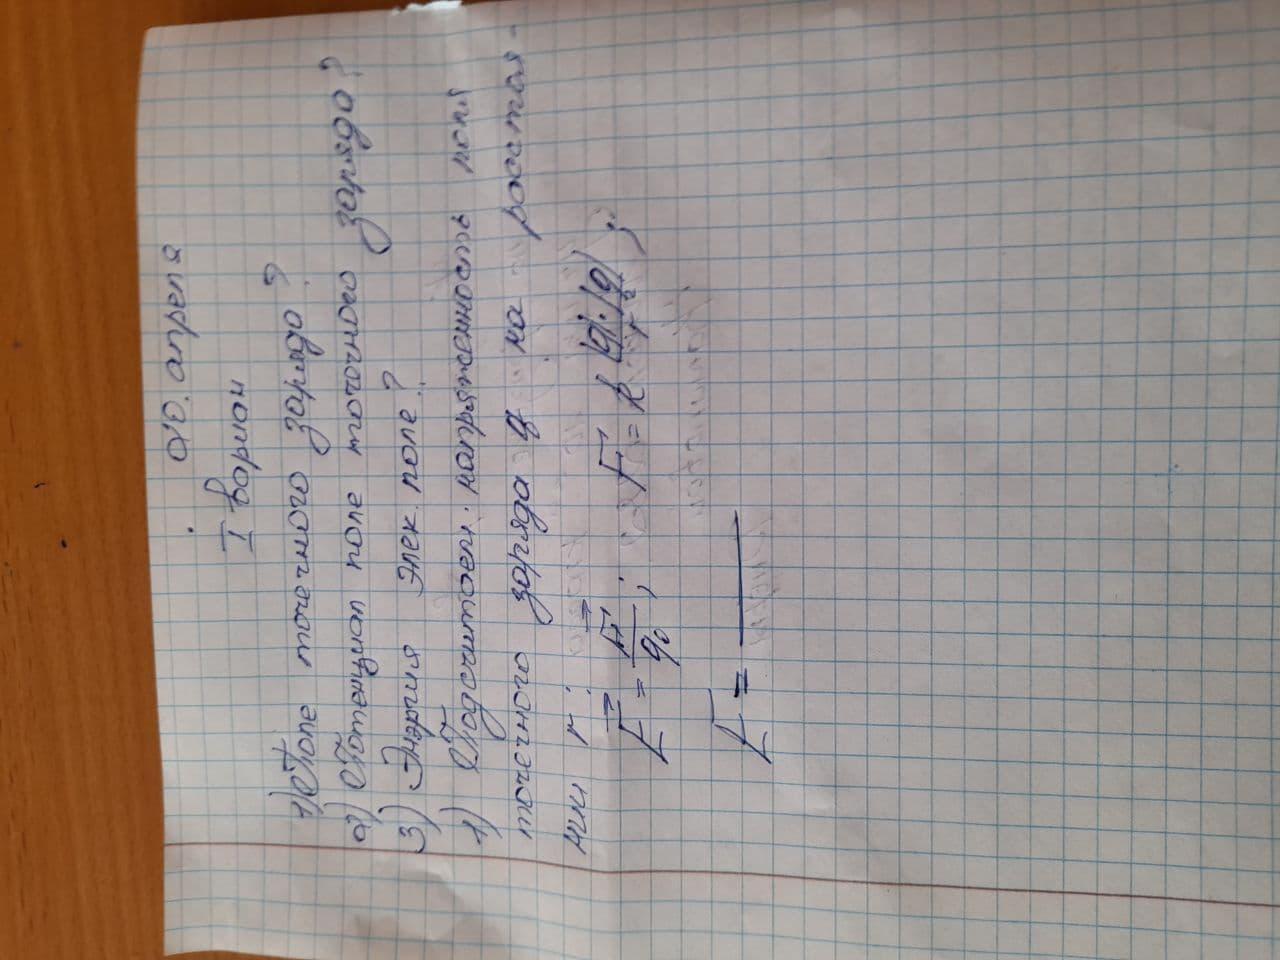 20. апреля
I вариан
1) Поле точечного заряда?
2) Потенциал поле точочного заряда?
3) Энэргия элек. поле?
1) Подсчитаем. напряженность поля
точечного заряда q на растоя-
нии r:
E = F/q₀; F = k |q|·|q|/r²;
E =